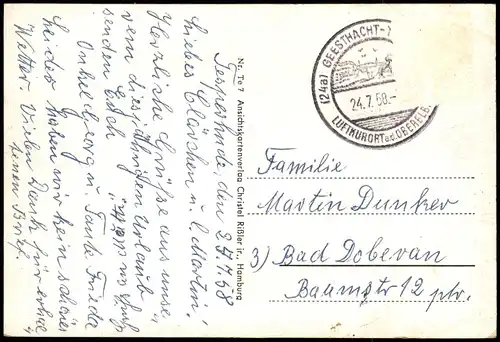 Tesperhude, den 24.7.58
Liebes Clärchen u. l. Martin!
Herzliche Grüße aus unse-
rem diesjährigen Urlaub
senden Euch
Onkel Georg u. Tante Frieda
Leider haben wir kein schönes
Wetter. Vielen Dank für
Deinen Brief.
Nr. Te 7 Ansichtskartenverlag Christel Rißler jr., Hamburg
(24a) GEESTHACHT-
24.7.58.-
LUFTKURORT a.d. OBERELB
Familie
Martin Dunker
3) Bad Doberan
Baumstr 12 ptr.